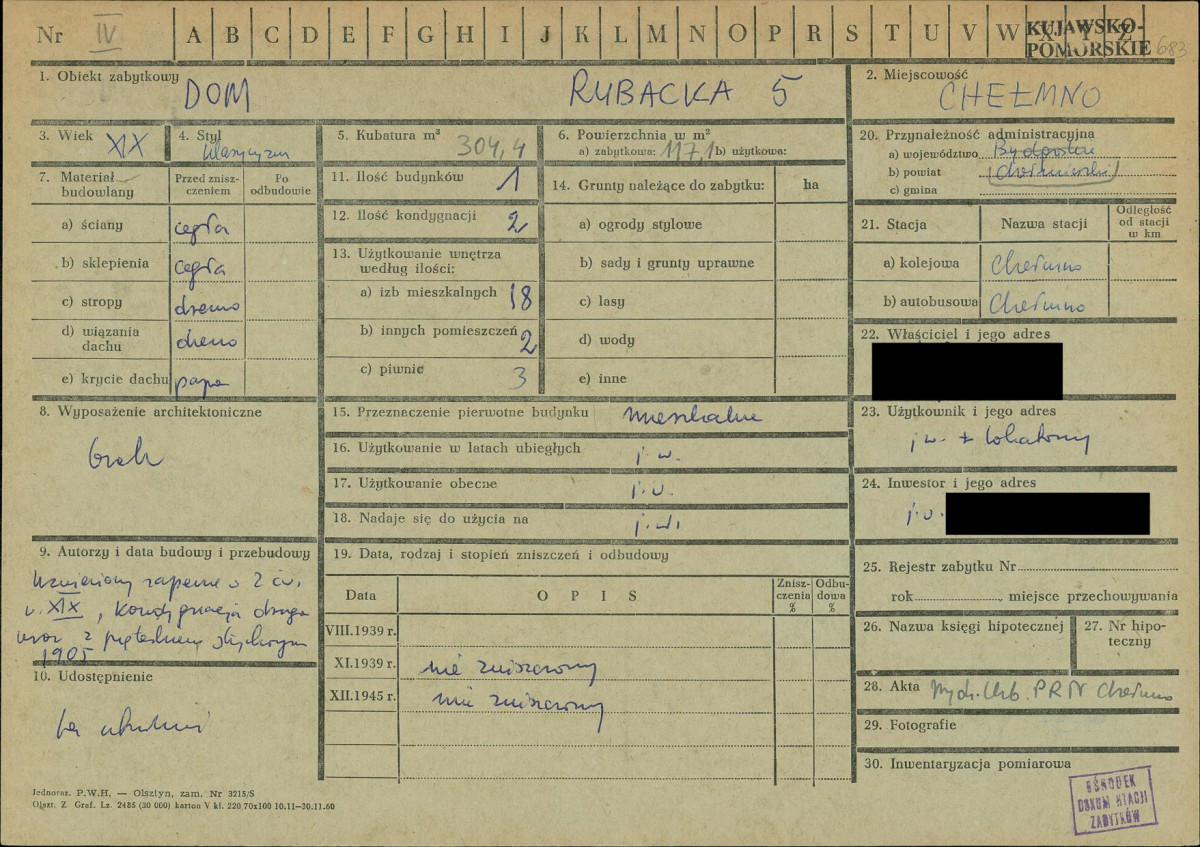 Nr IV A B C D E F G H I J K L M N O P R S T U V W X Y Z KUJAWSKO-
POMORSKIE 683
1. Obiekt zabytkowy
DOM RYBACKA 5
2. Miejscowość
CHEŁMNO
3. Wiek XIX
4. Styl
klasycyzm
5. Kubatura m³
304,4
6. Powierzchnia w m²
a) zabytkowa: 117,1 b) użytkowa:
7. Materiał budowlany
Przed zniszczeniem
Po odbudowie
a) ściany cegła
b) sklepienia cegła
c) stropy drewno
d) wiązania
dachu drewno
e) krycie dachu papa
8. Wyposażenie architektoniczne
brak
9. Autorzy i data budowy i przebudowy
Wzniesiony zapewne w 2 ćw.
w. XIX, kondygnacja druga
wraz z
1905
10. Udostępnienie
11. Ilość budynków 1
12. Ilość kondygnacji 2
13. Użytkowanie wnętrza
według ilości:
a) izb mieszkalnych 18
b) innych pomieszczeń 2
c) piwnic 3
14. Grunty należące do zabytku: ha
a) ogrody stylowe
b) sady i grunty uprawne
c) lasy
d) wody
e) inne
15. Przeznaczenie pierwotne budynku mieszkalne
16. Użytkowanie w latach ubiegłych j. w.
17. Użytkowanie obecne j. w.
18. Nadaje się do użycia na j. w.
19. Data, rodzaj i stopień zniszczeń i odbudowy
Data O P I S Znisz-
czenia
% Odbu-
dowa
%
VIII.1939 r.
XI.1939 r. nie zniszczony
XII.1945 r. nie zniszczony
20. Przynależność administracyjna
a) województwo Bydgoskie
b) powiat (chełmiński)
c) gmina
21. Stacja Nazwa stacji Odległość
od stacji
w km
a) kolejowa Chełmno
b) autobusowa Chełmno
22. Właściciel i jego adres
23. Użytkownik i jego adres
j w. + lokatorzy
24. Inwestor i jego adres
j. w.
25. Rejestr zabytku Nr
rok, miejsce przechowywania
26. Nazwa księgi hipotecznej
27. Nr hipo-
teczny
28. Akta Wydz. Arb. PRN Chełmno
29. Fotografie
30. Inwentaryzacja pomiarowa
OŚRODEK
DOKUMENTACJI
ZABYTKÓW
Jednoraz. P.W.H. — Olsztyn, zam. Nr 3215/S
Olszt. Z. Graf. Lz. 2485 (30 000) karton V kl. 220 70x100 10.11—30.11.60